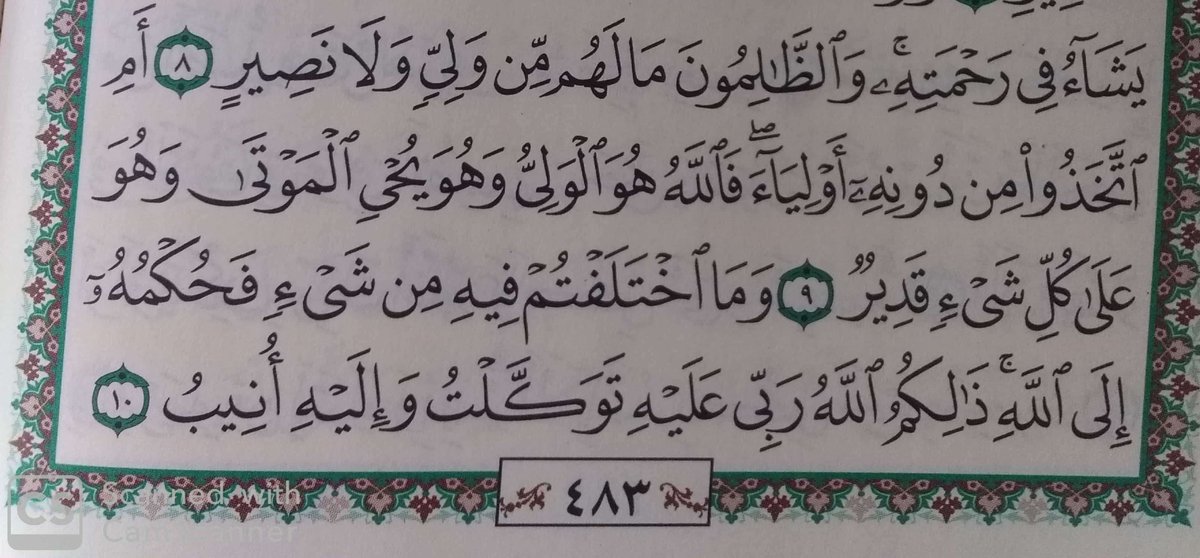 يَشَآءُ فِى رَحْمَتِهِۦ ۚ وَٱلظَّٰلِمُونَ مَا لَهُم مِّن وَلِىٍّ وَلَا نَصِيرٍ ٨ أَمِ
ٱتَّخَذُوا۟ مِن دُونِهِۦٓ أَوْلِيَآءَ ۖ فَٱللَّهُ هُوَ ٱلْوَلِىُّ وَهُوَ يُحْىِ ٱلْمَوْتَىٰ وَهُوَ
عَلَىٰ كُلِّ شَىْءٍ قَدِيرٌ ٩ وَمَا ٱخْتَلَفْتُمْ فِيهِ مِن شَىْءٍ فَحُكْمُهُۥٓ
إِلَى ٱللَّهِ ۚ ذَٰلِكُمُ ٱللَّهُ رَبِّى عَلَيْهِ تَوَكَّلْتُ وَإِلَيْهِ أُنِيبُ ١٠
٤٨٣
CS Scanned with
CamScanner